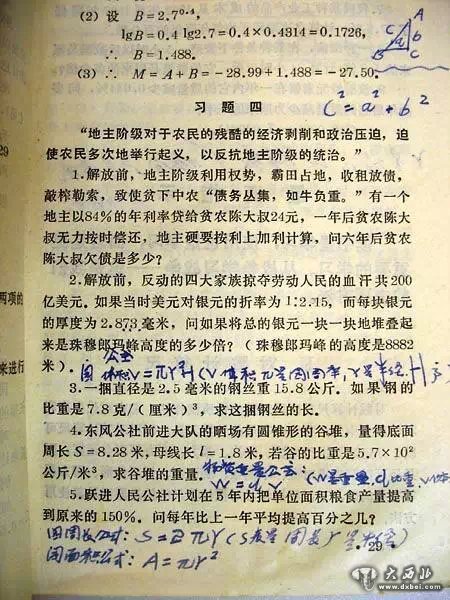 (2) 设 B=2.7^0.4,
lgB=0.4 lg2.7=0.4×0.4314=0.1726,
∴ B=1.488.
(3) ∴ M=A+B=-28.99+1.488=-27.50.
A
C
b
B
C
c²=a²+b²
习题四
“地主阶级对于农民的残酷的经济剥削和政治压迫，迫
使农民多次地举行起义，以反抗地主阶级的统治。”
1.解放前，地主阶级利用权势，霸田占地，收租放债，
敲榨勒索，致使贫下中农“债务丛集，如牛负重。”有一个
地主以84%的年利率贷给贫农陈大叔24元，一年后贫农陈大
叔无力按时偿还，地主硬要按利上加利计算，问六年后贫农
陈大叔欠债是多少？
2.解放前，反动的四大家族掠夺劳动人民的血汗共200
亿美元。如果当时美元对银元的折率为1:2.15，而每块银元
的厚度为2.873毫米，问如果将总的银元一块一块地堆叠起
来是珠穆郎玛峰高度的多少倍？（珠穆郎玛峰的高度是8882
米）.
3.一捆直径是2.5毫米的钢丝重15.8公斤.如果钢的
比重是7.8克/（厘米）³，求这捆钢丝的长.
4.东风公社前进大队的晒场有圆锥形的谷堆，量得底面
周长S=8.28米，母线长l=1.8米，若谷的比重是5.7×10²
公斤/米³，求谷堆的重量.
W=d.V
5.跃进人民公社计划在5年内把单位面积粮食产量提高
到原来的150%.问每年比上一年平均提高百分之几？
S=2πr
圆面积公式：A=πr²
·29·
29
两项的
来进行
大西北
www.dxbei.com